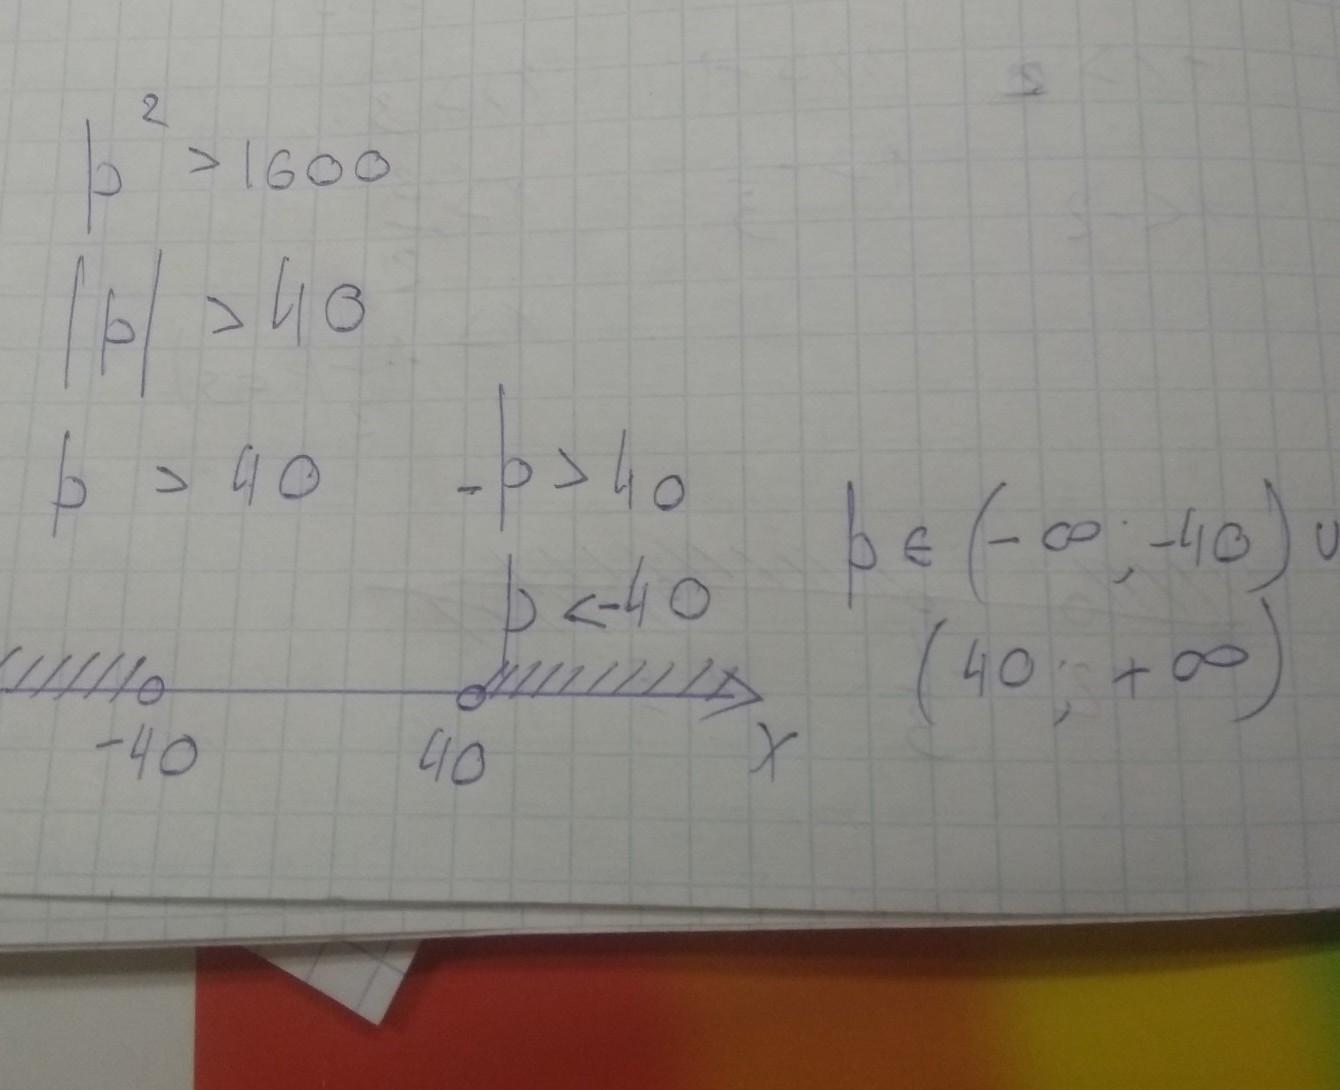 p² > 1600
|p| > 40
p > 40 -p > 40
p < -40
p ∈ (-∞; -40) ∪
(40; +∞)
-40 40 x